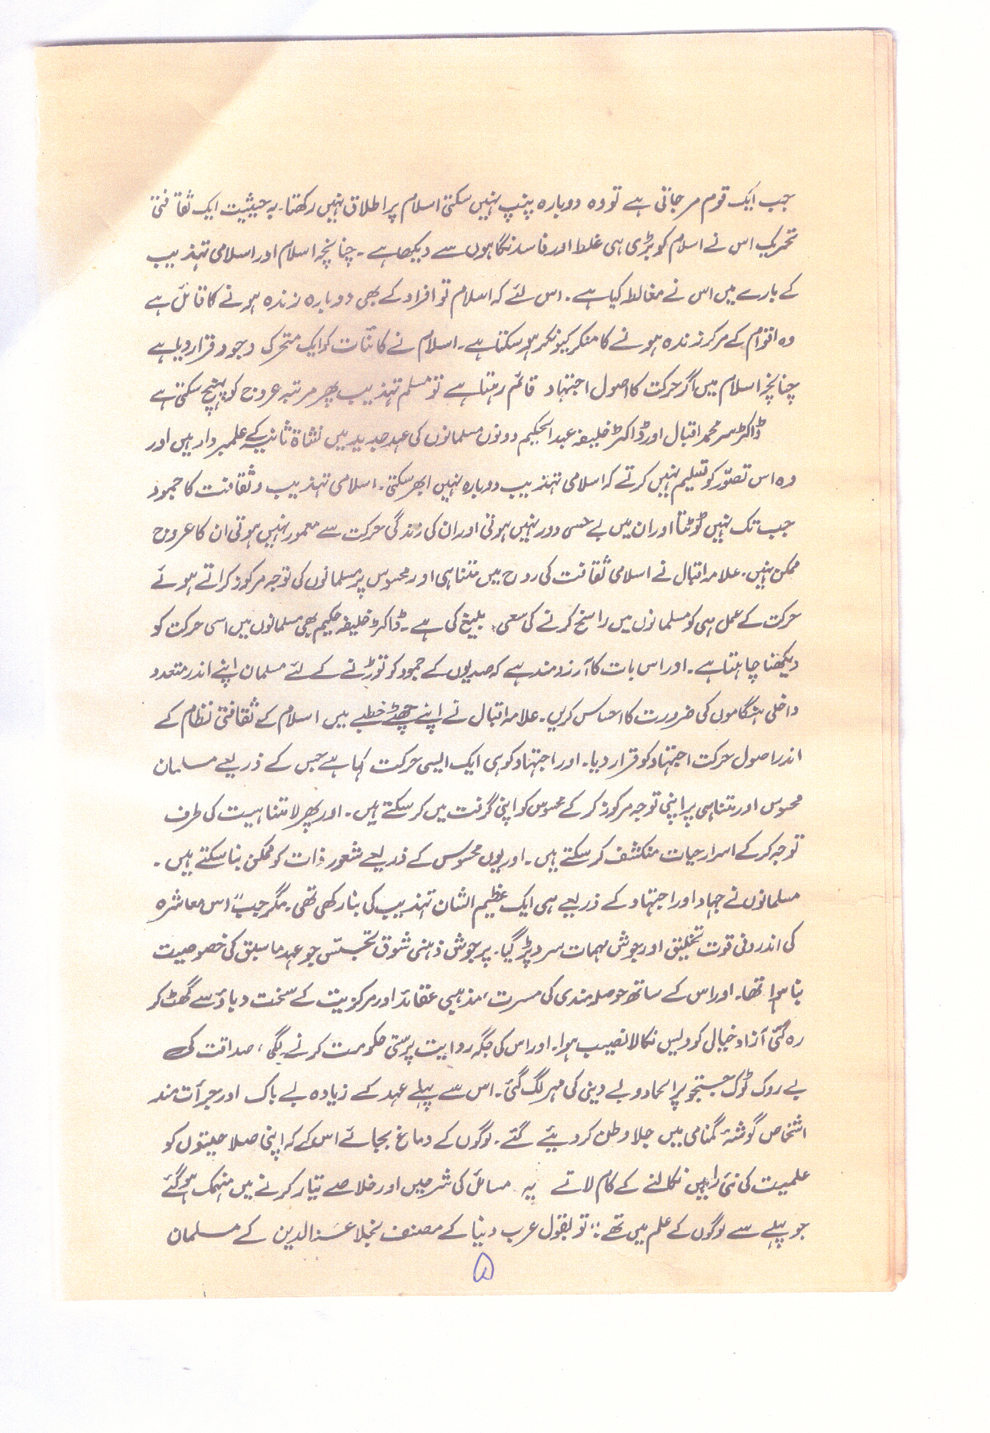 جب ایک قوم مر جاتی ہے تو وہ دوبارہ پنپ نہیں سکتی اسلام پر اطلاق نہیں رکھتا۔ بہ حیثیت ایک ثقافتی
تحریک اس نے اسلام کو بڑی ہی غلط اور فاسد نگاہوں سے دیکھا ہے۔ چنانچہ اسلام اور اسلامی تہذیب
کے بارے میں اس نے مغالطہ کیا ہے۔ اس لئے کہ اسلام تو افراد کے بھی دوبارہ زندہ ہونے کا قائل ہے
وہ اقوام کے مرکر زندہ ہونے کا منکر کیونکر ہو سکتا ہے۔ اسلام نے کائنات کو ایک متحرک وجود قرار دیا ہے
چنانچہ اسلام میں اگر حرکت کا اصول اجتہاد قائم رہتا ہے تو مسلم تہذیب پھر مرتبہ عروج کو پہنچ سکتی ہے
ڈاکٹر سر محمد اقبال اور ڈاکٹر خلیفہ عبدالحکیم دونوں مسلمانوں کی عہد جدید میں نشاۃ ثانیہ کے علمبردار ہیں اور
وہ اس تصوّر کو تسلیم نہیں کرتے کہ اسلامی تہذیب دوبارہ نہیں ابھر سکتی۔ اسلامی تہذیب و ثقافت کا جمود
جب تک نہیں ٹوٹتا اور ان میں بے حسی دور نہیں ہوتی اور ان کی زندگی حرکت سے معمور نہیں ہوتی ان کا عروج
ممکن نہیں۔ علامہ اقبال نے اسلامی ثقافت کی روح میں متناہی اور محسوس پر مسلمانوں کی توجہ مرکوز کراتے ہوئے
حرکت کے عمل ہی کو مسلمانوں میں راسخ کرنے کی سعی بلیغ کی ہے۔ ڈاکٹر خلیفہ حکیم بھی مسلمانوں میں اسی حرکت کو
دیکھنا چاہتا ہے۔ اور اس بات کا آرزومند ہے کہ صدیوں کے جمود کو توڑنے کے لئے مسلمان اپنے اندر متعدد
داخلی ہنگاموں کی ضرورت کا احساس کریں۔ علامہ اقبال نے اپنے چھٹے خطبے میں اسلام کے ثقافتی نظام کے
اندر اصول حرکت اجتہاد کو قرار دیا۔ اور اجتہاد کو ہی ایک ایسی حرکت کہا ہے جس کے ذریعے مسلمان
محسوس اور متناہی پر اپنی توجہ مرکوز کر کے محسوس کو اپنی گرفت میں کر سکتے ہیں۔ اور پھر لامتناہیت کی طرف
توجہ کر کے اسرار حیات منکشف کر سکتے ہیں۔ اور یوں محسوس کے ذریعے شعور ذات کو ممکن بنا سکتے ہیں۔
مسلمانوں نے جہاد اور اجتہاد کے ذریعے ہی ایک عظیم الشان تہذیب کی بنا رکھی تھی۔ مگر جب "اس معاشرہ
کی اندرونی قوت تخلیق اور جوش مہمات سرد پڑ گیا۔ پر جوش ذہنی شوق تجسّس جو عہد ماسبق کی خصوصیت
بنا ہوا تھا۔ اور اس کے ساتھ حوصلہ مندی کی مسرت، مذہبی عقائد اور مرکزیت کے سخت دباؤ سے گھٹ کر
رہ گئی آزاد خیال کو دیس نکالا نصیب ہوا۔ اور اس کی جگہ روایت پرستی حکومت کرنے لگی، صداقت کی
بے روک ٹوک جستجو پر الحاد و بے دینی کی مہر لگ گئی۔ اس سے پہلے عہد کے زیادہ بے باک اور جرأت مند
اشخاص گوشۂ گمنامی میں جلاوطن کر دیئے گئے۔ لوگوں کے دماغ بجائے اس کے کہ اپنی صلاحیتوں کو
علمیت کی نئی راہیں نکالنے کے کام لاتے یہ مسائل کی شرحیں اور خلاصے تیار کرنے میں منہمک ہو گئے
جو پہلے سے لوگوں کے علم میں تھے؛" تو بقول عرب دنیا کے مصنف نجلا عزالدین کے مسلمان